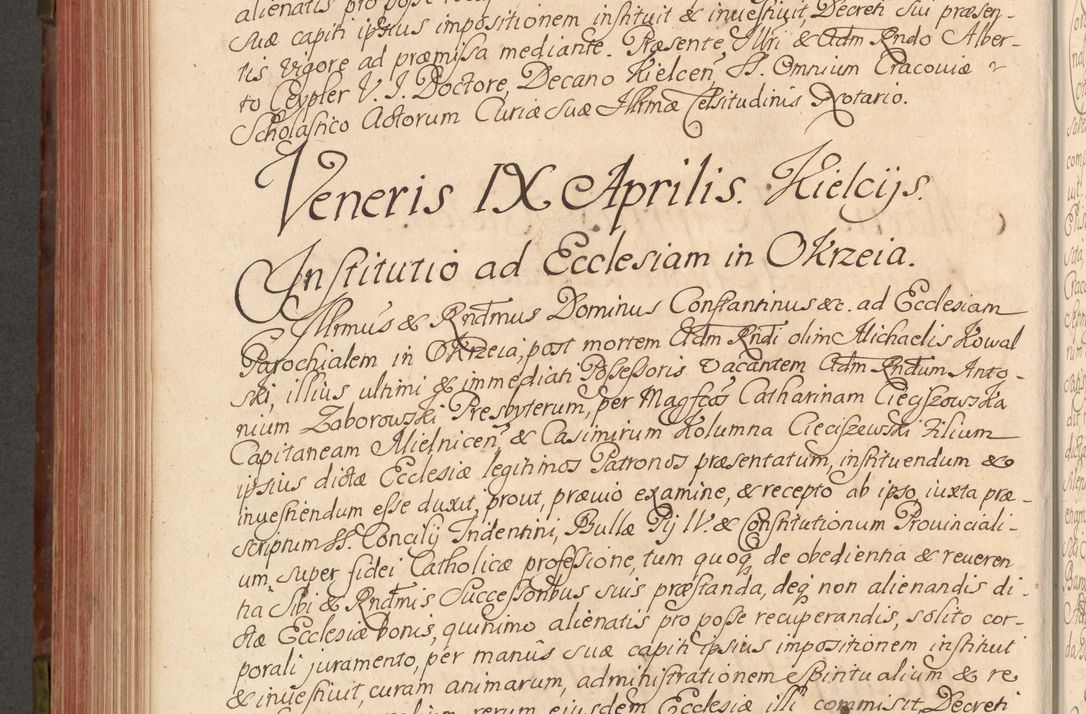 alienatis pro posse
suæ capiti ipsius impositionem instituit & investivit, Decreti sui præsen-
tis vigore ad præmissa mediante. Præsente Illri & Adm Rndo Alber-
to Ceypler V. I. Doctore, Decano Kielcen, SS. Omnium Cracoviæ
Scholastico Actorum Curiæ Suæ Illrmæ Celsitudinis Notario.
Veneris IX Aprilis. Kielcijs.
Institutio ad Ecclesiam in Okrzeia.
Illrmus & Rndmus Dominus Constantinus &c. ad Ecclesiam
Parochialem in Okrzeia, post mortem Adm Rndi olim Michaelis Kowal
ski, illius ultimi & immediati Possessoris vacantem Adm Rndum Anto-
nium Zaborowski Presbyterum, per Magfcos Catharinam Cieciszowska
Capitaneam Mielnicen, & Casimirum Kolumna Cieciszewski Filium
ipsius dictæ Ecclesiæ legitimos Patronos præsentatum, instituendum &
investiendum esse duxit, prout, prævio examine, & recepto ab ipso, iuxta præ-
scriptum SS. Concilij Tridentini, Bullæ Pij IV. & Constitutionum Provinciali-
um, super fidei Catholicæ professione, tum quoq de obedientia & reveren
tia Sibi & Rndmis Successoribus suis præstanda, deq non alienandis di-
ctæ Ecclesiæ bonis, quinimo alienatis pro posse recuperandis, solito cor-
porali juramento, per manûs suæ capiti ipsius impositionem instituit
& investivit, curam animarum, administrationem Spiritualium & te
rerum eiusdem Ecclesiæ illi commisit, Decreti